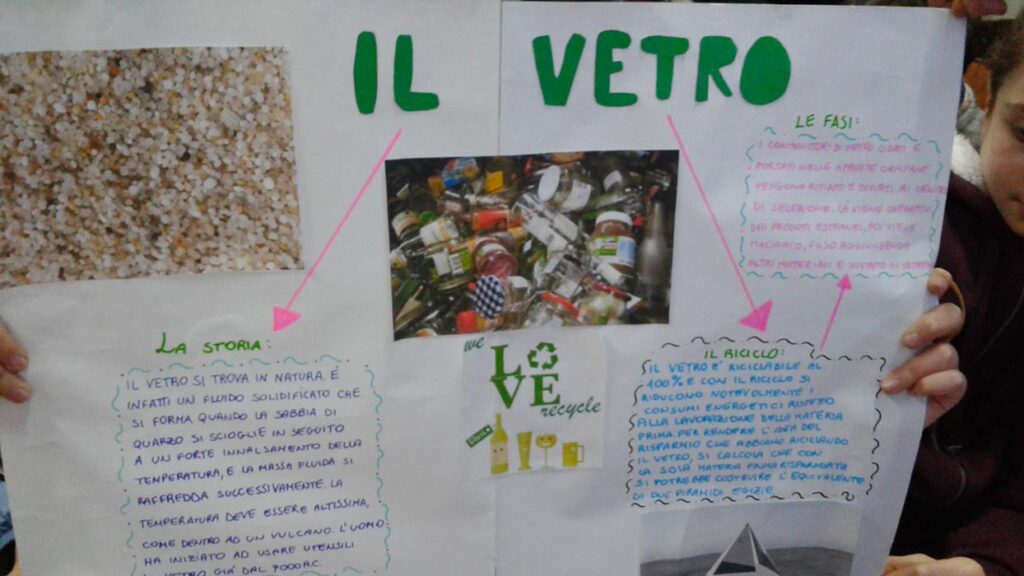 IL VETRO
LE FASI:
I CONTENITORI DI VETRO USATI E
PORTATI NELLE APPOSITE CAMPANE
VENGONO RITIRATI E INVIATI AI CENTRI
DI SELEZIONE. LÀ VIENE SEPARATO
DAI PRODOTTI ESTRANEI, POI VIENE
MACINATO, FUSO AGGIUNGENDO
ALTRI MATERIALI E IN VETRO
LA STORIA:
IL VETRO SI TROVA IN NATURA. É
INFATTI UN FLUIDO SOLIDIFICATO CHE
SI FORMA QUANDO LA SABBIA DI
QUARZO SI SCIOGLIE IN SEGUITO
A UN FORTE INNALSAMENTO DELLA
TEMPERATURA, E LA MASSA FLUIDA SI
RAFFREDDA SUCCESSIVAMENTE. LA
TEMPERATURA DEVE ESSERE ALTISSIMA,
COME DENTRO AD UN VULCANO. L'UOMO
HA INIZIATO AD USARE UTENSILI
VETRO GIÁ DAL 7000 A.C.
we
LOVE
recycle
IL RICICLO:
IL VETRO E' RICICLABILE AL
100% E CON IL RICICLO SI
RIDUCONO NOTEVOLMENTE I
CONSUMI ENERGETICI RISPETTO
ALLA LAVORAZIONE DELLA MATERIA
PRIMA. PER RENDERE L'IDEA DEL
RISPARMIO CHE ABBIAMO RICICLANDO
IL VETRO, SI CALCOLA CHE CON
LA SOLA MATERIA PRIMA RISPARMIATA
SI POTREBBE COSTRUIRE L'EQUIVALENTE
DI DUE PIRAMIDI EGIZIE